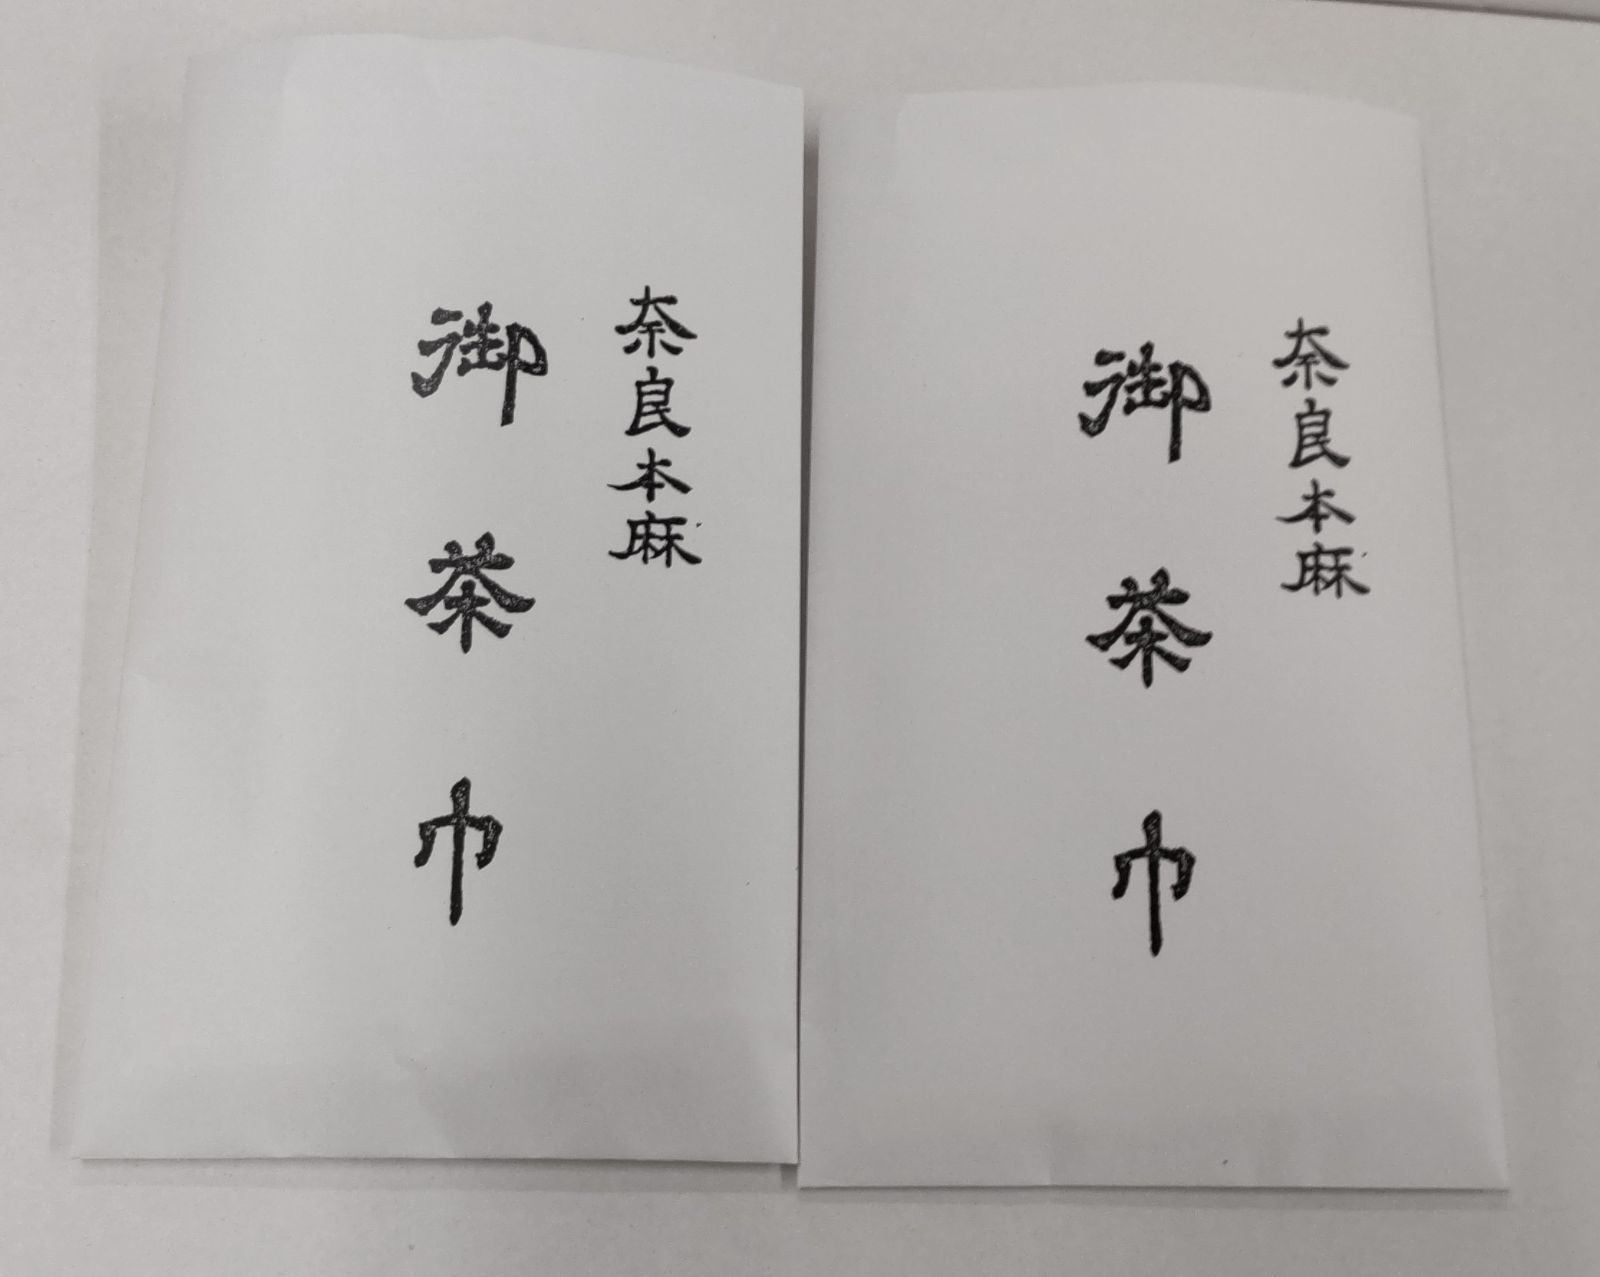 奈良本麻
御茶巾
奈良本麻
御茶巾